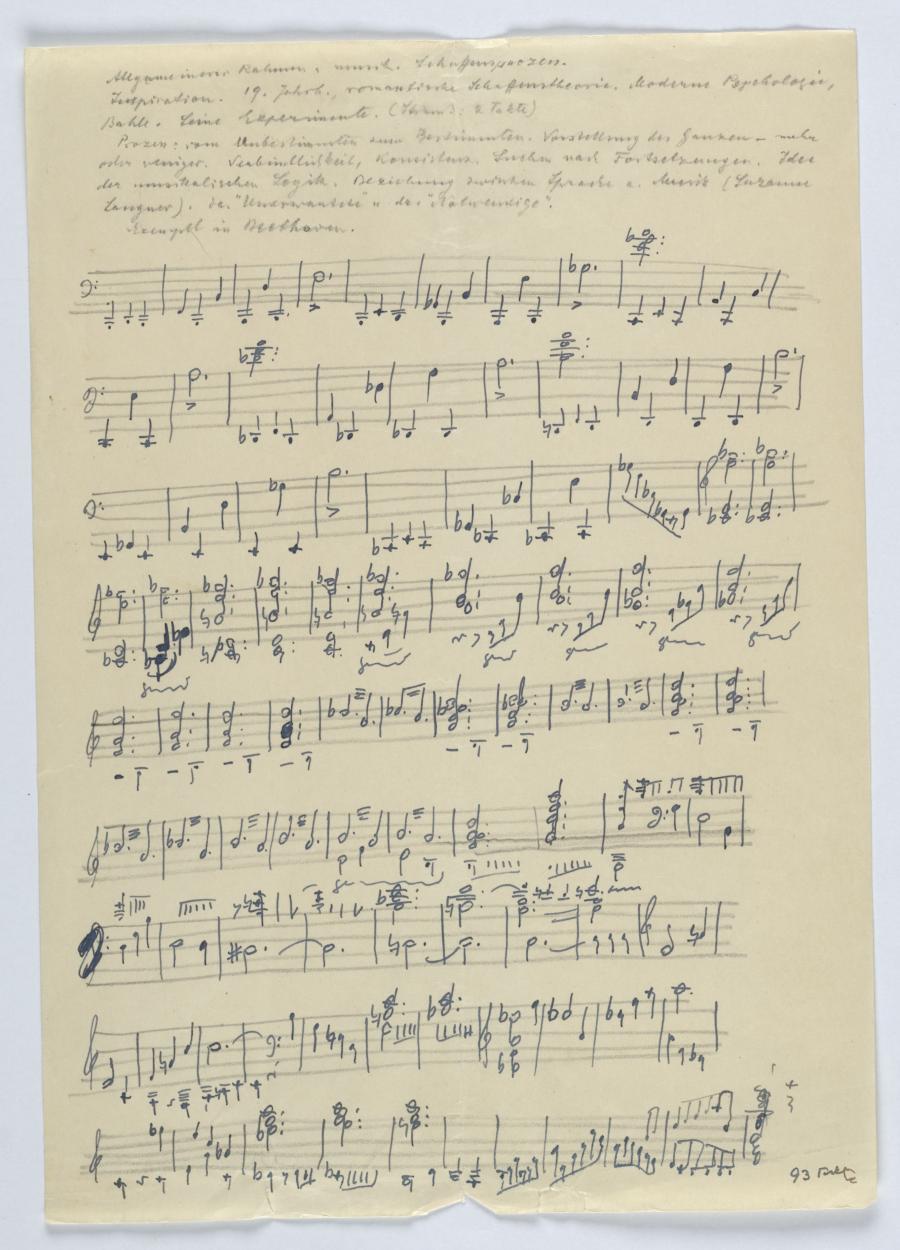 Allgemeiner Rahmen: musik. Schaffensprozess.
Inspiration. 19. Jahrh., romantische Schaffenstheorie. Moderne Psychologie,
Bahle. Seine Experimente. (: 2 Takte)
Prozess: vom Unbestimmten zum Bestimmten. Vorstellung des Ganzen – mehr
oder weniger. Verbindlichkeit, Konsistenz. Suchen nach Fortsetzungen. Idee
der musikalischen Logik. Beziehung zwischen Sprache u. Musik (Suzanne
Langner). Das "Unerwartete" u. das "Notwendige".
Exempel in Beethoven.
93 Takte